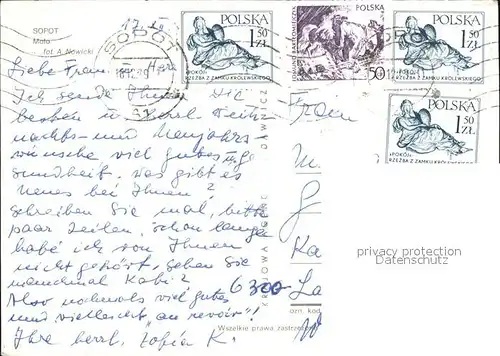 SOPOT
Molo
fot. A. Nowicki
17.
SOPOT
POLSKA
1 50 ZŁ
«POKÓJ»
RZEŹBA Z ZAMKU KRÓLEWSKIEGO
POLSKA
50
POLSKA
1 50 ZŁ
«POKÓJ»
RZEŹBA Z ZAMKU KRÓLEWSKIEGO
POLSKA
1 50 ZŁ
«POKÓJ»
RZEŹBA Z ZAMKU KRÓLEWSKIEGO
Liebe Frau Herr
Ich sende Ihnen die
besten u. herzl. Weih-
nachts- und Neujahrs
wünsche viel gutes Ge
sundheit. Was gibt es
neues bei Ihnen?
schreiben Sie mal, bitte
paar Zeilen, schon lange
habe ich von Ihnen
nicht gehört, sehen Sie
manchmal Kabi?
Also nochmals viel gutes
und vielleicht "au revoir"!
Ihre herzl. Zofia K.
KRAJOWA AGENC DAWNICZ
Frau
Ka
6300 La
ozn. kod
Wszelkie prawa zastrzeżo
privacy protection
Datenschutz